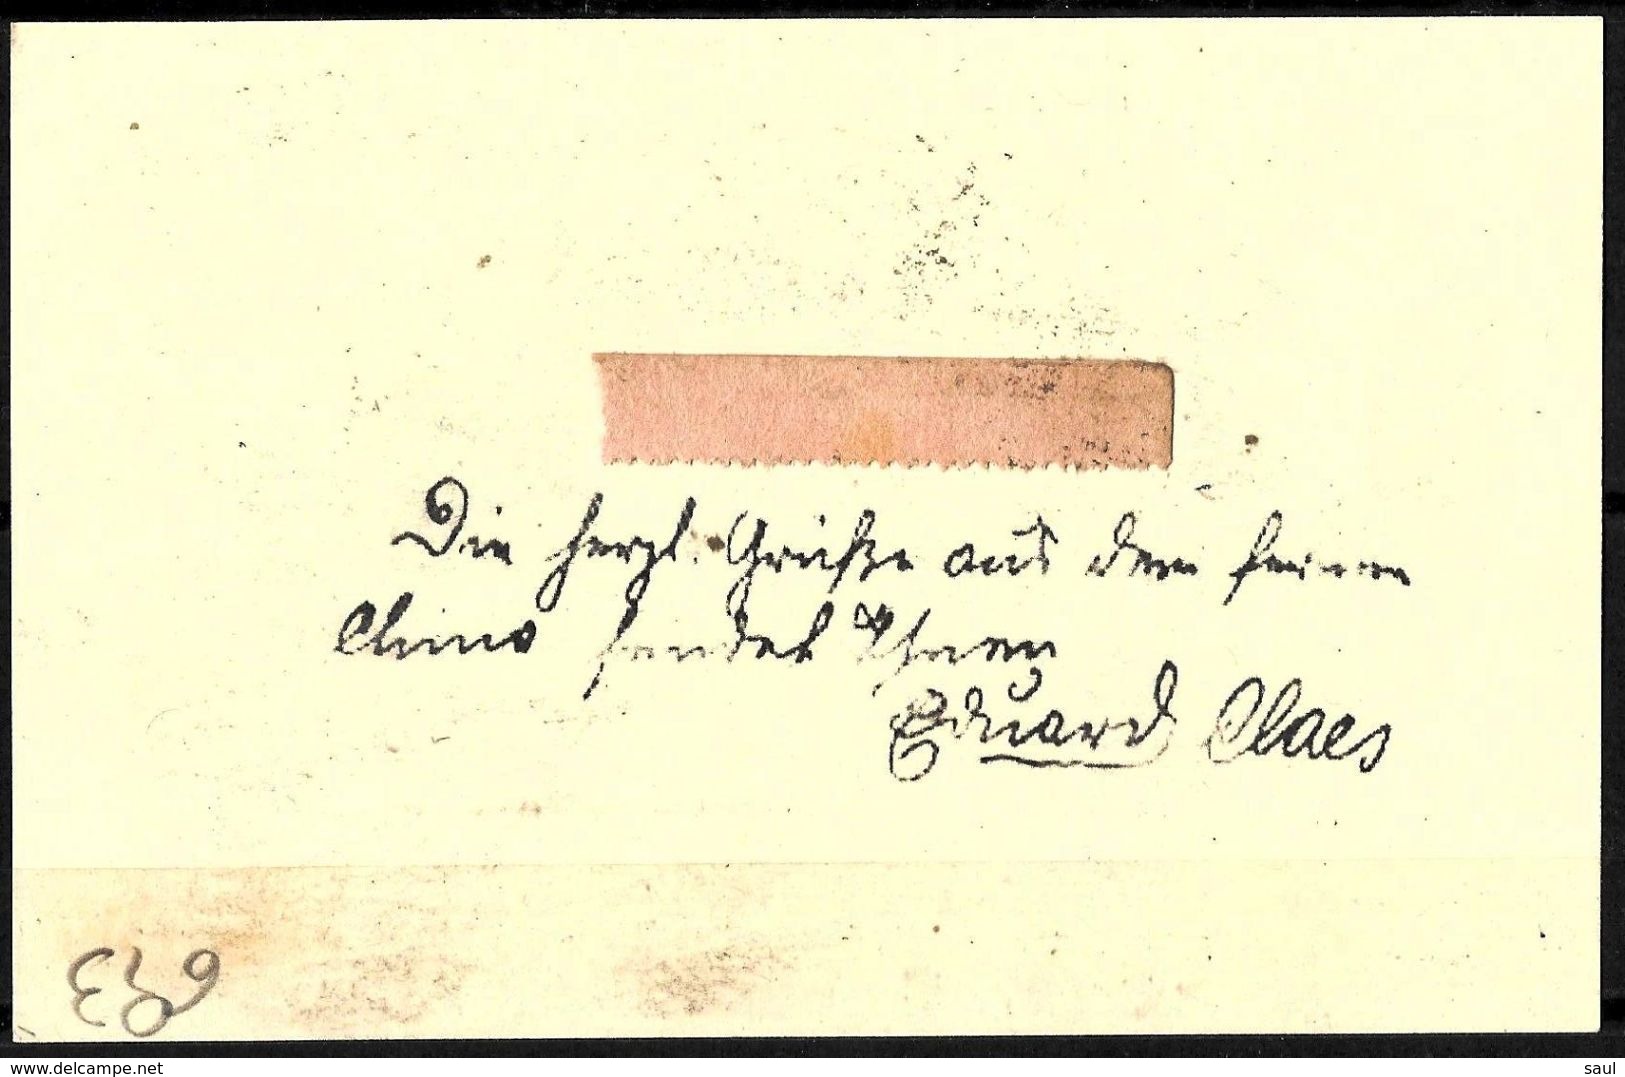 Die herzl. Grüße aus dem fernen
China sendet Ihnen
Eduard Claes
delcampe.net
saul